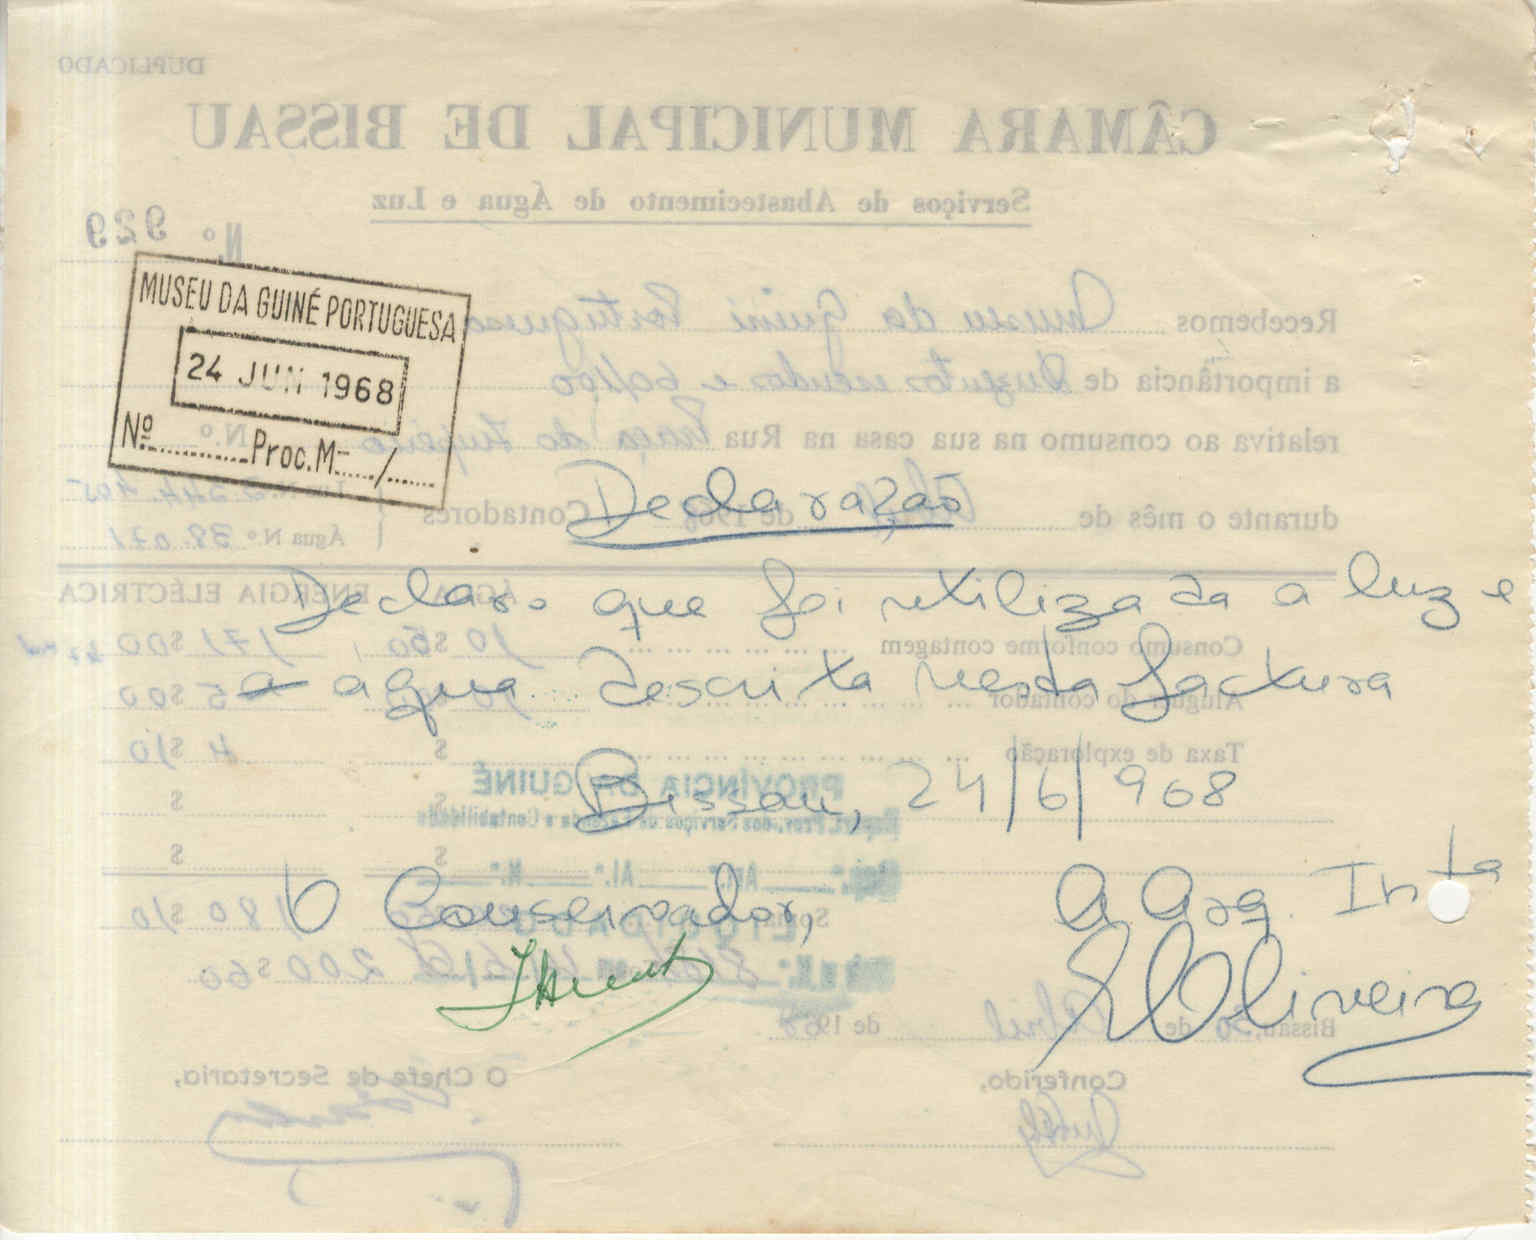 MUSEU DA GUINÉ PORTUGUESA
24 JUN 1968
Nº Proc. M- /
Declaração
Declaro que foi utilizada a luz e
a agua descrita nesta factura
Bissau, 24/6/968
O Conservador,
A Arq. Inta
Oliveira
DUPLICADO
CÂMARA MUNICIPAL DE BISSAU
Serviços de Abastecimento de Água e Luz
N.º 929
Recebemos Museu da Guiné Portuguesa
a importância de Duzentos escudos e 60/100
relativa ao consumo na sua casa na Rua Praça do Império N.º
durante o mês de de 1968 Contadores
Água N.º 38.071
ÁGUA ENERGIA ELÉCTRICA
Consumo conforme contagem 10 $50 171 $00
Aluguer do contador 5 $00
Taxa de exploração $ 4 $10
$ $
$ $
180 $10
200 $60
PROVÍNCIA DA GUINÉ
Repart. Prov. dos Serviços de Fazenda e Contabilidade
Art.º Al.ª N.º
LIQUIDADO
Bissau, 30 de Abril de 1968
Conferido,
O Chefe de Secretaria,